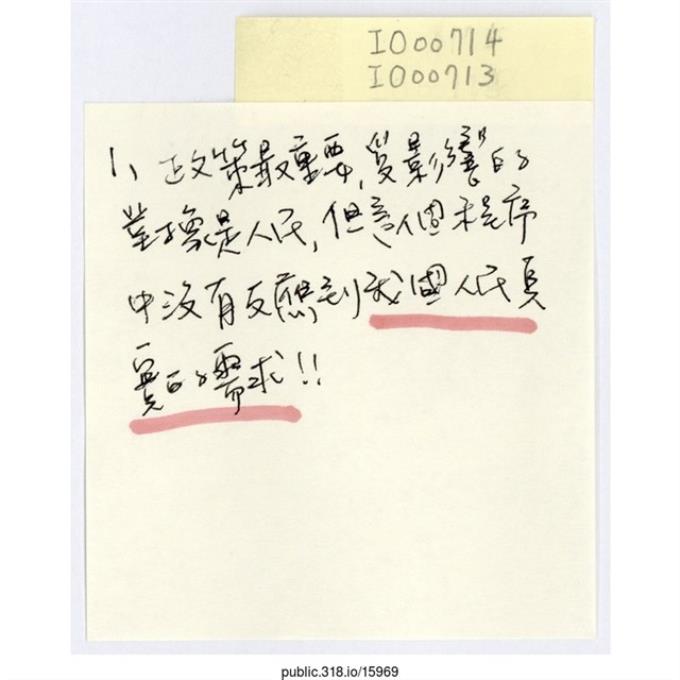 IO00714
IO00713
1、政策最重要,受影響的
對象是人民,但這個程序
中沒有反應到我國人民真
實的需求!!
public.318.io/15969